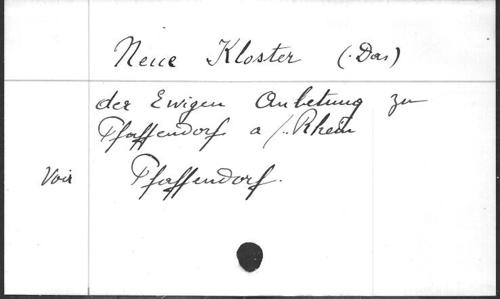 Neue Kloster (Das)
der Ewigen Anbetung zu
Pfaffendorf a/. Rhein
Voir Pfaffendorf.